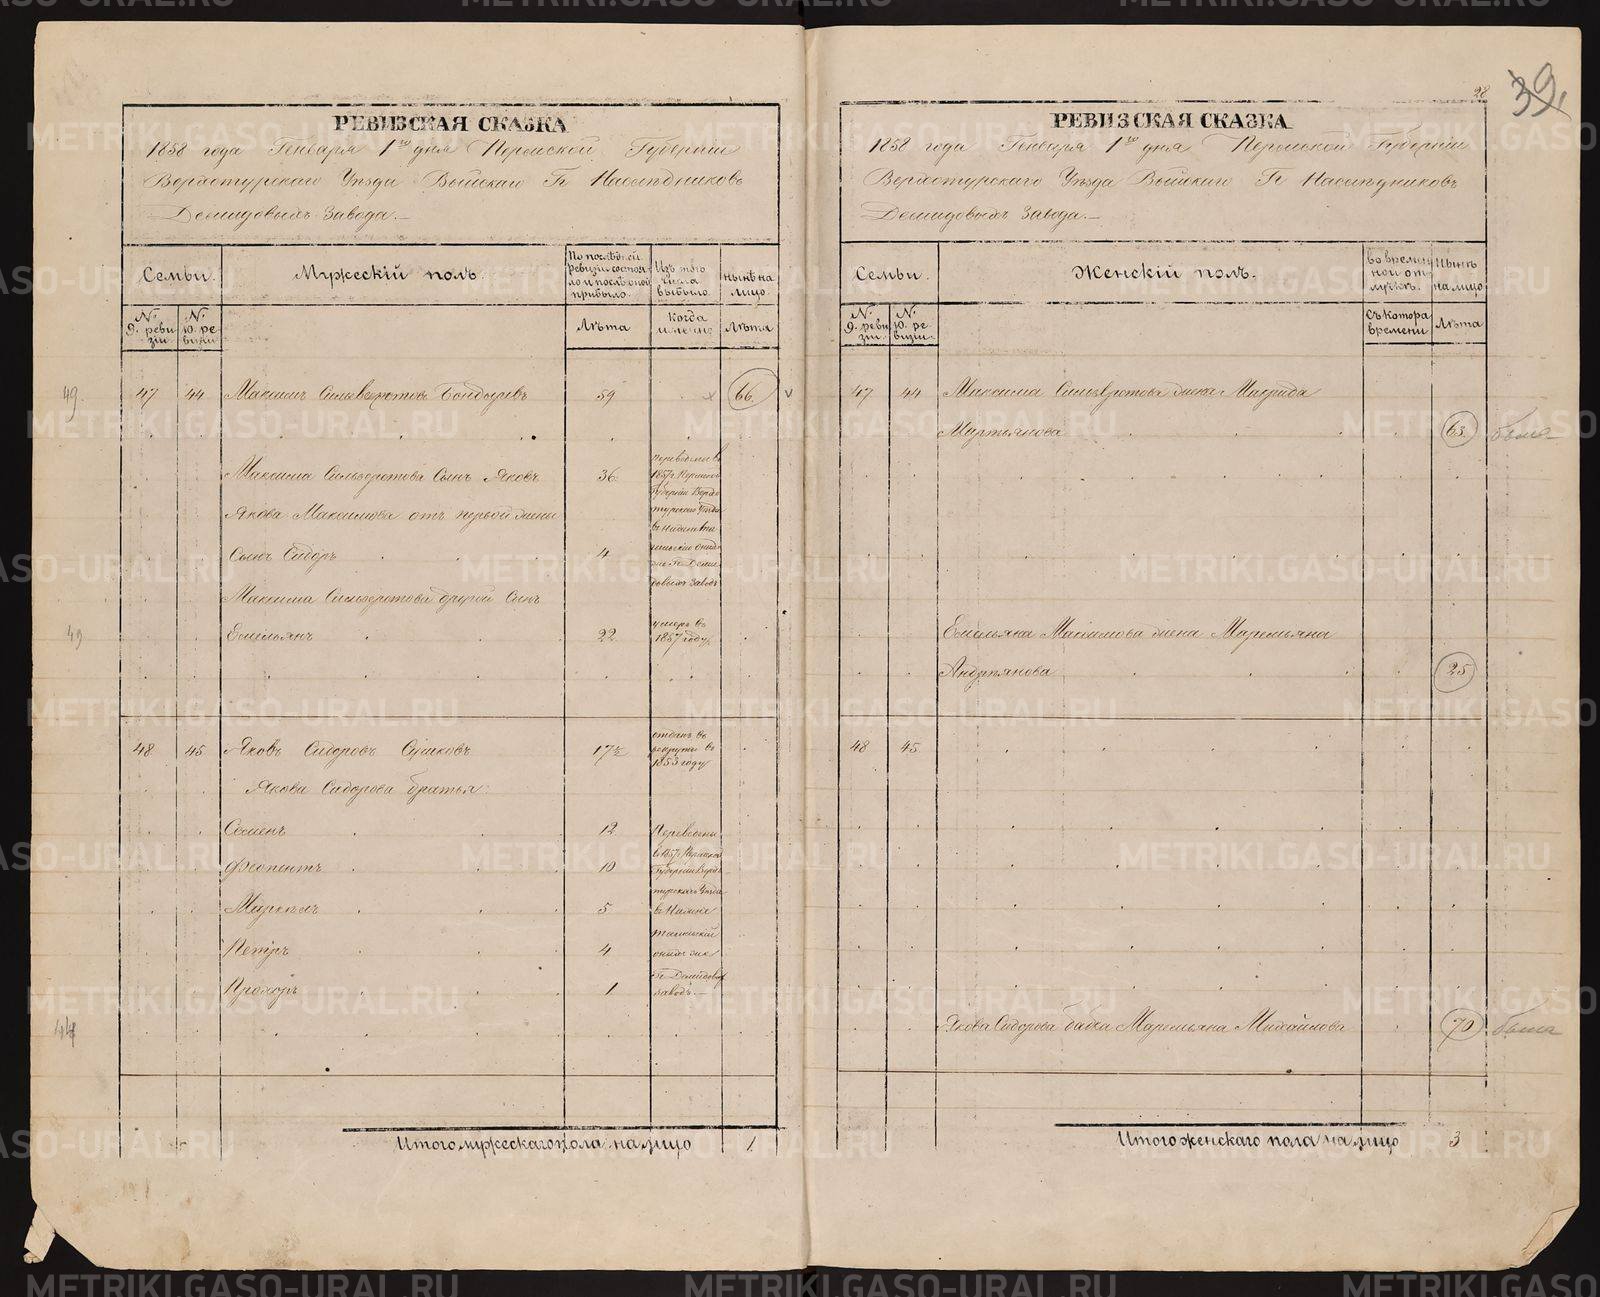 28
39
РЕВИЗСКАЯ СКАЗКА
1858 года Генваря 1го дня Пермской Губерніи
Верхотурскаго Уѣзда Выйскаго Гг. Наслѣдниковъ
Демидовыхъ Завода.
Семьи.
Мужескій полъ.
По послѣдней ревизіи состояло и послѣ оной прибыло.
Изъ того числа выбыло.
нынѣ на лицо.
№ 9. ревизіи
№ 10. ревизіи
Лѣта
Когда именно
Лѣта
49 47 44 Максимъ Сильверстовъ Бондаревъ 59 66.
Максима Сильверстова Сынъ Яковъ 36
Якова Максимова отъ первой жены
Сынъ Сидоръ 4
переведены въ
1857 г. Пермской
Губерніи Верхо
турскаго Уѣзда
въ Нижнетаги
Гг. Деми
довыхъ Заводъ
Максима Сильверстова другой Сынъ
49 Емельянъ 22 умеръ въ
1857 году
48 45 Яковъ Сидоровъ 17½ отданъ въ
рекруты въ
1853 году
Якова Сидорова братья
Семенъ 12
Феопентъ 10
Маркелъ 5
Петръ 4
Прохоръ 1
Переведены
в 1857 г. Пермской
Губерніи Верхо
турскаго Уѣзда
в Нижне
тагильскій
Гг. Демидовых
Заводъ.
44
Итого мужескаго пола на лицо 1
РЕВИЗСКАЯ СКАЗКА
1858 года Генваря 1го дня Пермской Губерніи
Верхотурскаго Уѣзда Выйскаго Гг. Наслѣдниковъ
Демидовыхъ Завода.
Семьи.
Женскій полъ.
во временной отлучкѣ.
Нынѣ на лицо
№ 9. ревизіи
№ 10. ревизіи
Съ котора времени
Лѣта
47 44 Максима Сильверстова жена Маврида
Мартьянова 63
Емельяна Максимова жена Маремьяна
Андреянова 25
48 45
Якова Сидорова бабка Маремьяна Михайлова 70
Итого женскаго пола на лицо 3
METRIKI.GASO-URAL.RU